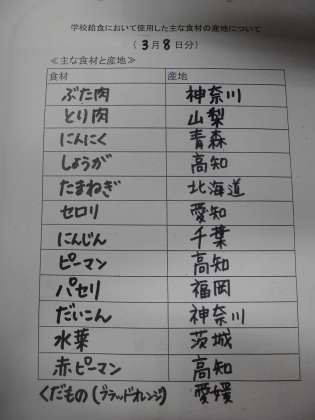 学校給食において使用した主な食材の産地について
(3月8日分)
≪主な食材と産地≫
食材 産地
ぶた肉 神奈川
とり肉 山梨
にんにく 青森
しょうが 高知
たまねぎ 北海道
セロリ 愛知
にんじん 千葉
ピーマン 高知
パセリ 福岡
だいこん 神奈川
水菜 茨城
赤ピーマン 高知
くだもの(ブラッドオレンジ) 愛媛